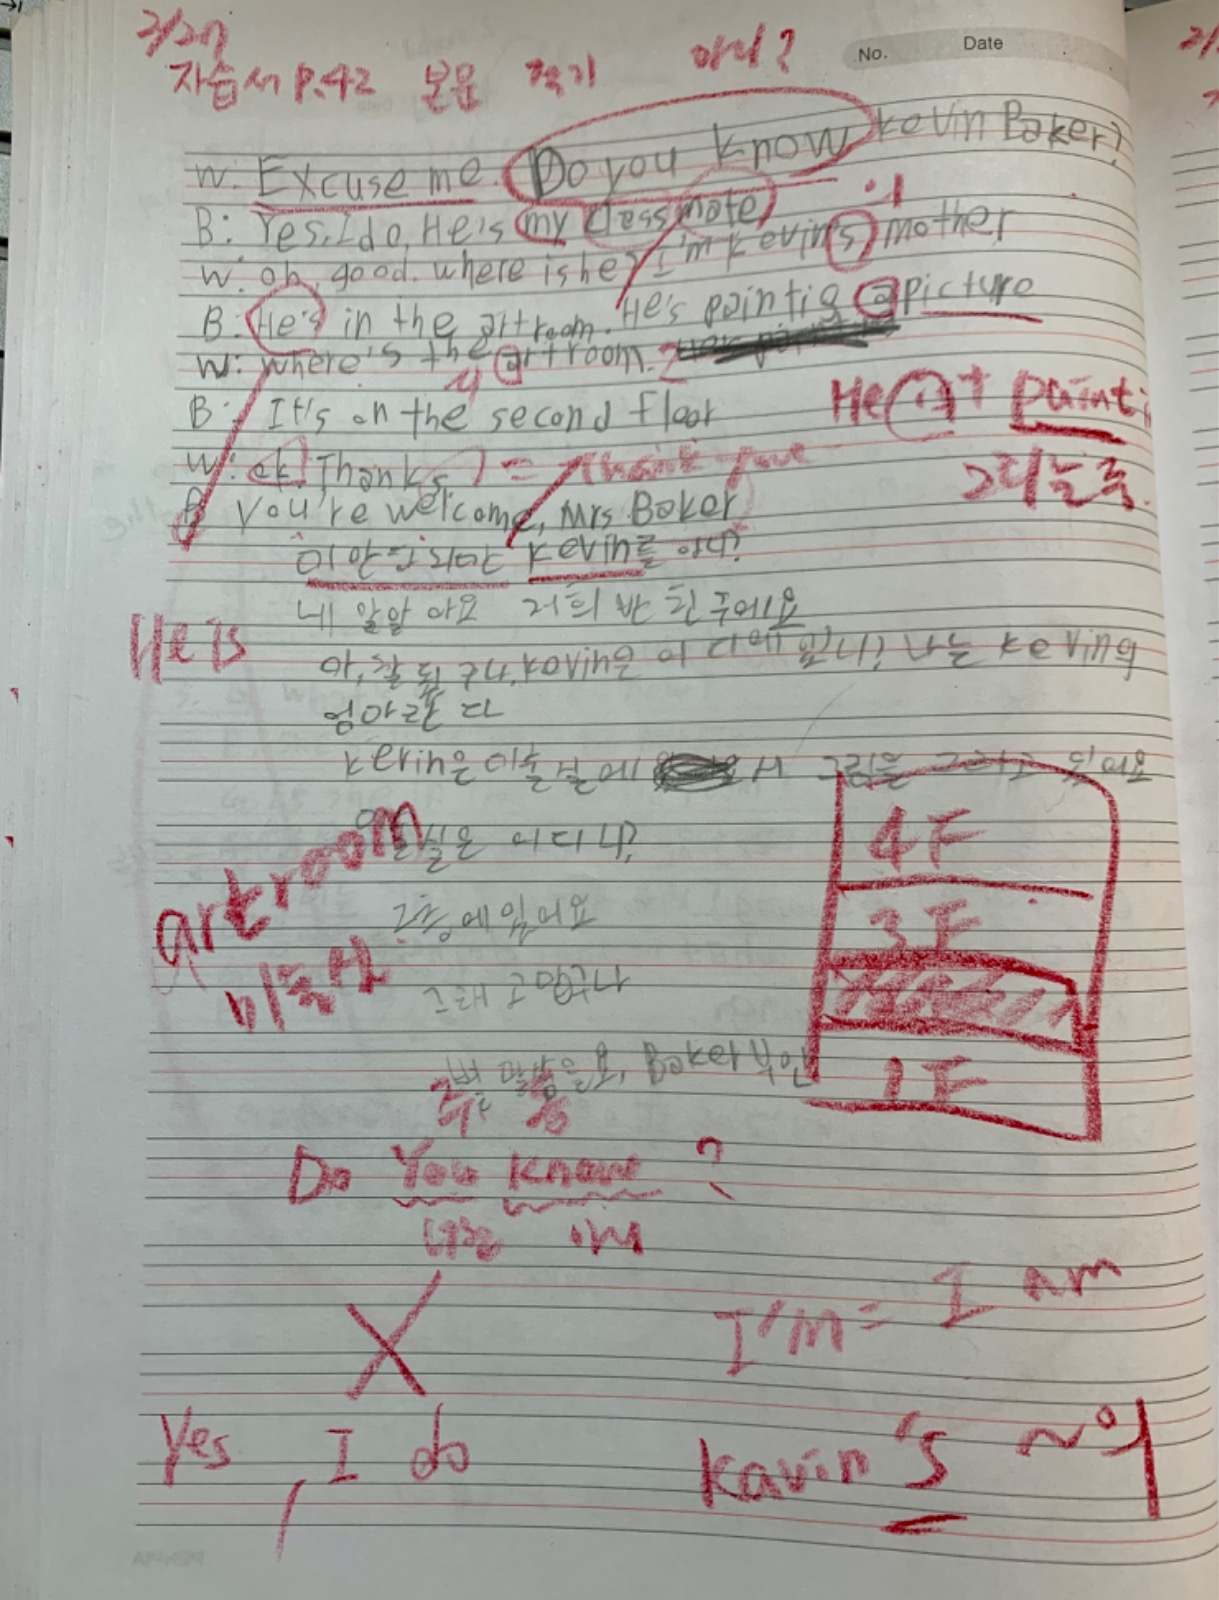 2/27
자습서 P.42 본문 적기 아니?
No. Date
W: Excuse me. Do you know kevin Baker?
B: Yes, I do, He's my classmate
의
W: oh, good. where is he? I'm kevin's mother
B: He's in the artroom. He's paintig a picture
W: where's the artroom.?
B: It's on the second floor
He is paint
W: ok! Thanks = Thank you
그리는 중.
B You're welcome, Mrs Baker
미안하지만 kevin를 아니?
네 알알아요 저희 반 친구에요
He is
아, 잘 됐구나. kevin은 어디에 있니? 나는 kevin의
엄마란다
kevin은 미술실에서 그림을 그리고 있어요
4F
artroom
미술실은 어디니?
3F
2층에 있어요
미술실
그래 고맙구나
1F
별 말씀을요, Baker부인
Do You know ?
너는 아니
X
I'm = I am
Yes, I do
kavin's ~의